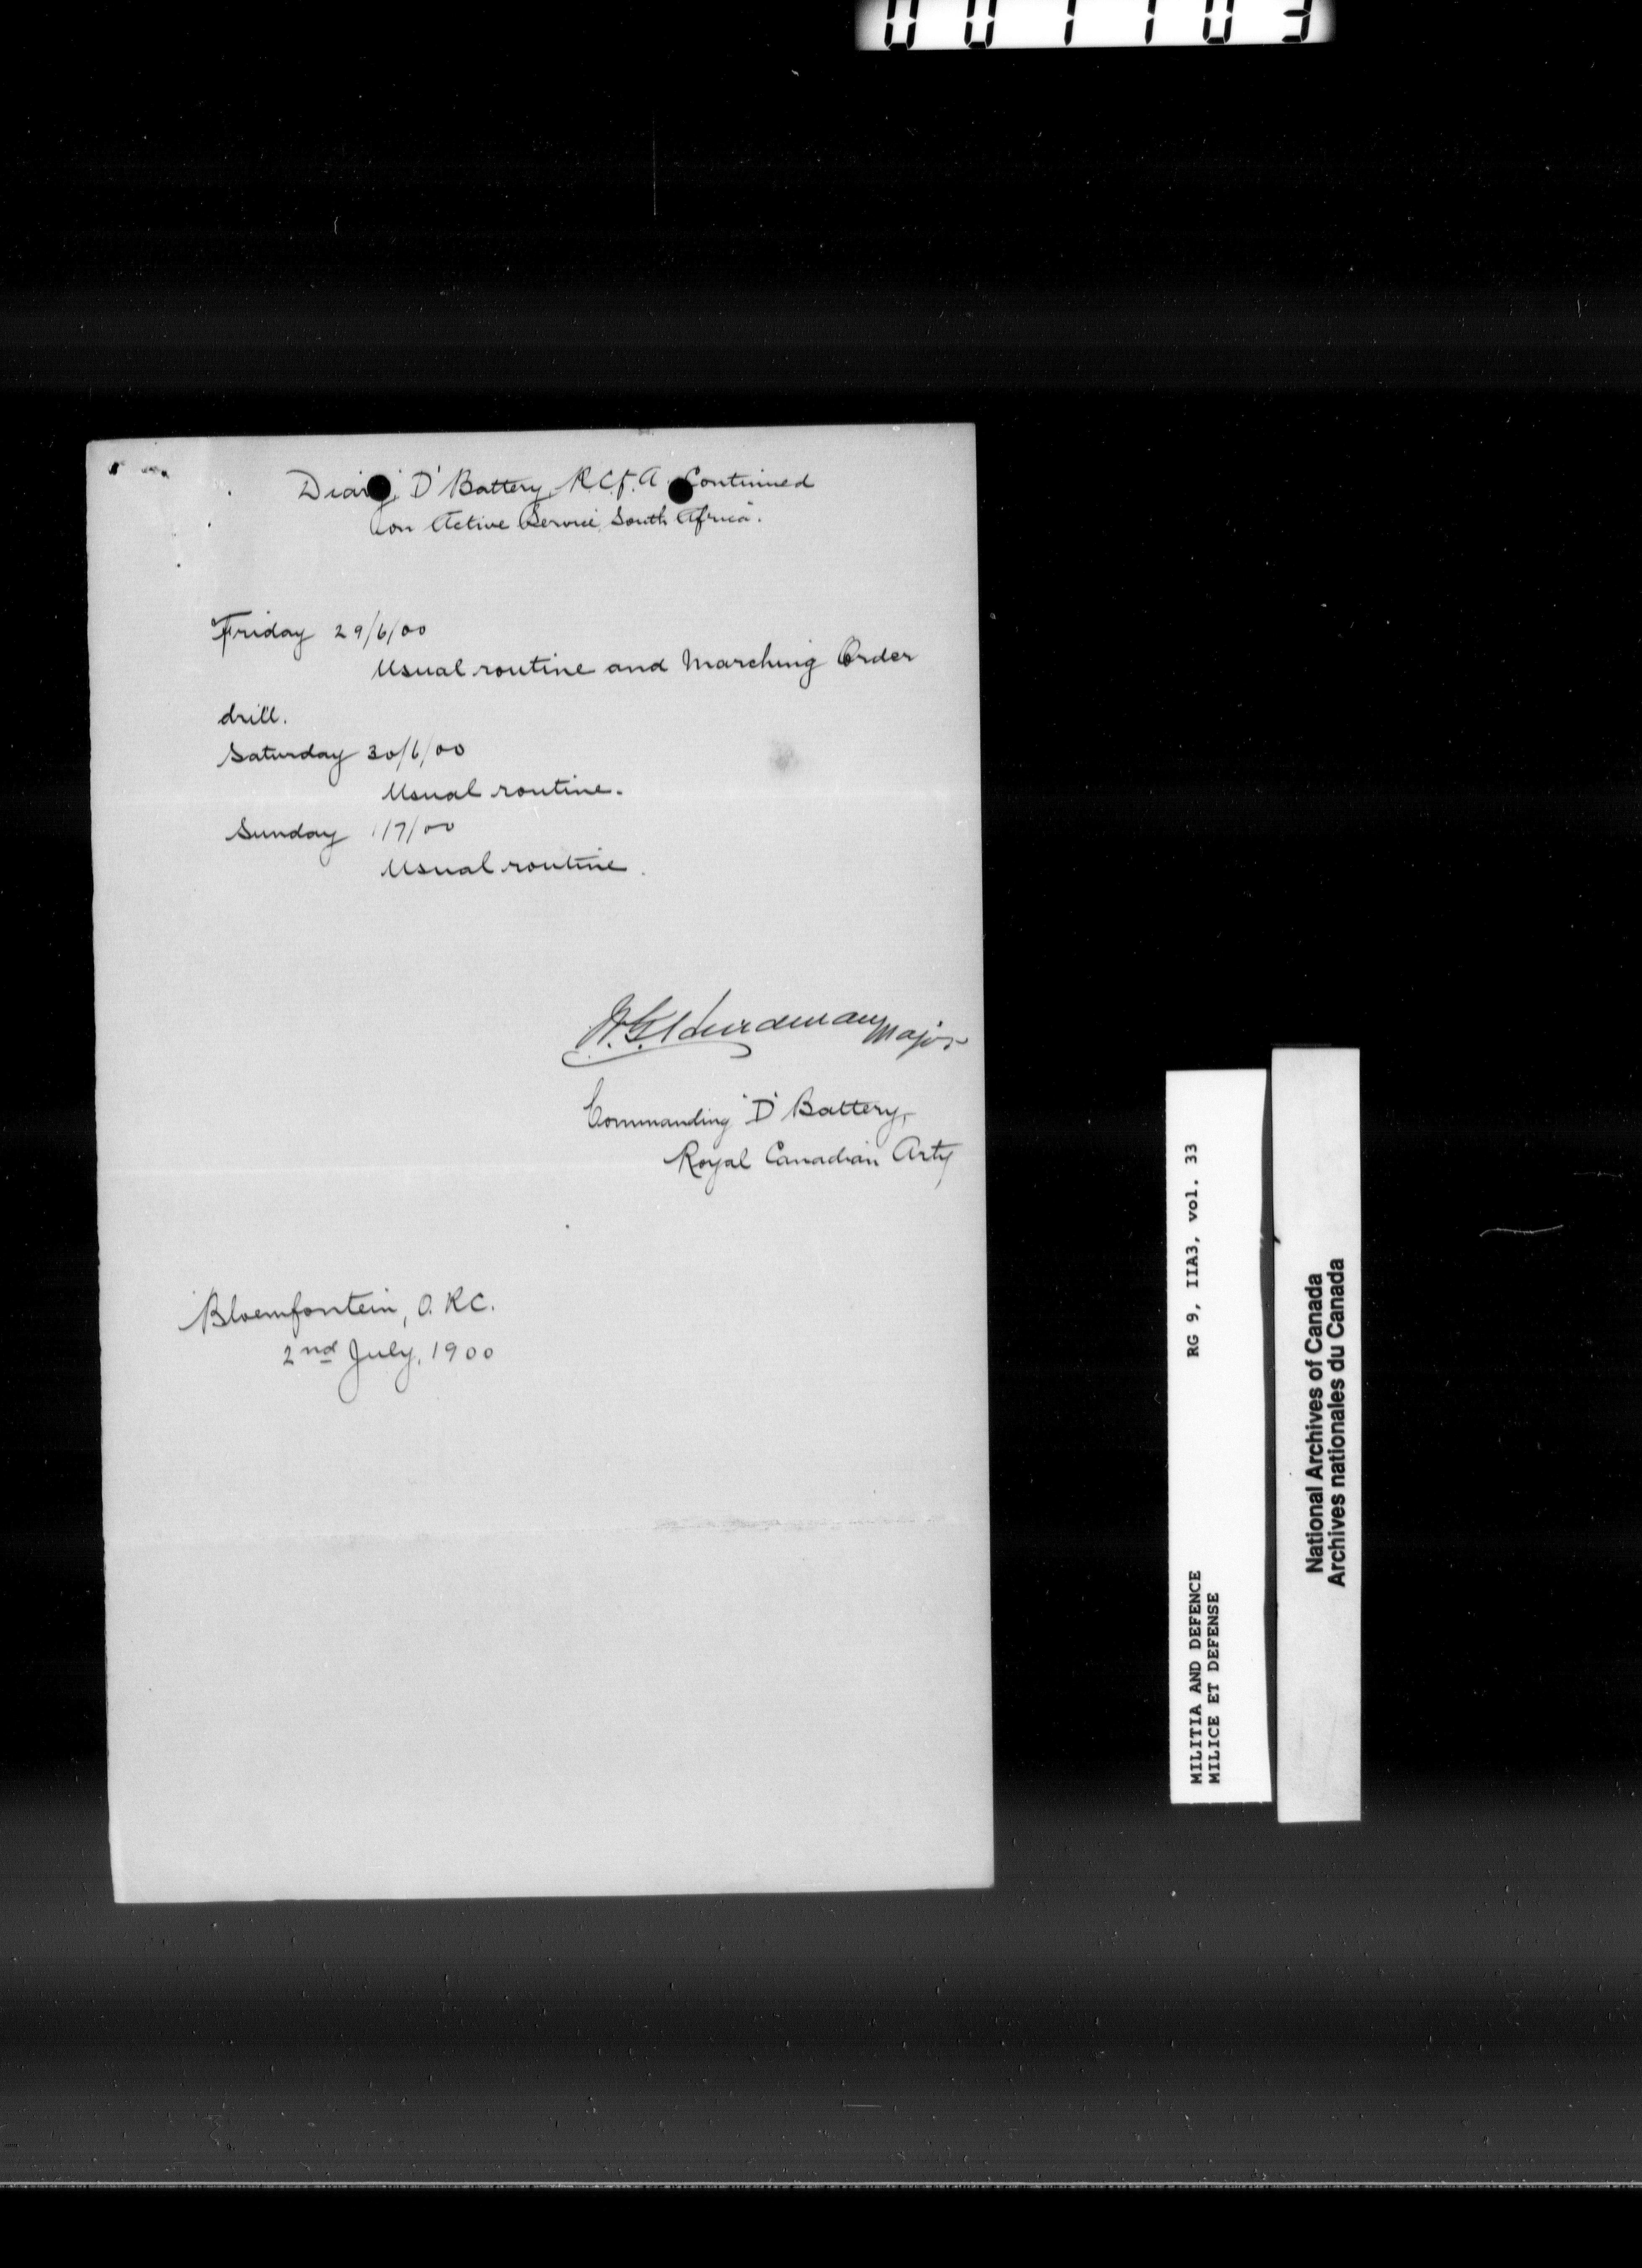 001103
Diary, 'D' Battery, R.C.F.A. Continued
on Active Service, South Africa.
Friday 29/6/00
Usual routine and Marching Order
drill.
Saturday 30/6/00
Usual routine.
Sunday 1/7/00
Usual routine.
Major
Commanding 'D' Battery,
Royal Canadian Arty
Bloemfontein, O.R.C.
2nd July, 1900
MILITIA AND DEFENCE RG 9, IIA3, vol. 33
MILICE ET DEFENSE
National Archives of Canada
Archives nationales du Canada